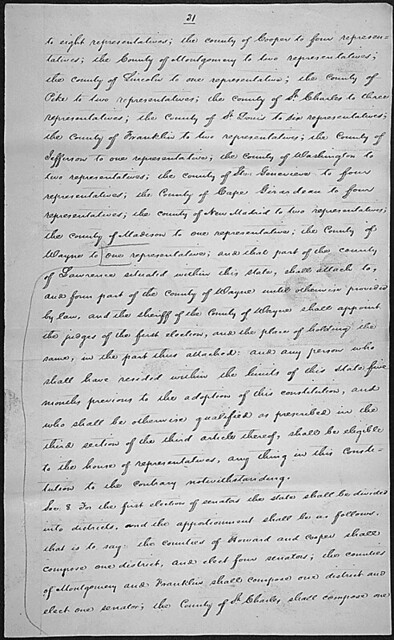 21
to eight representatives; the county of Cooper to four represen-
tatives; the County of Montgomery to two representatives;
the county of Lincoln to one representative; the county of
Pike to two representatives; the county of St. Charles to three
representatives; the County of St. Louis to six representatives;
the County of Franklin to two representatives; the County of
Jefferson to one representative; the county of Washington to
two representatives; the county of Ste. Genevieve to four
representatives; the County of Cape Girardeau to four
representatives; the county of New Madrid to two representatives;
the county of Madison to one representative; the County of
Wayne to one representative; and that part of the county
of Lawrence situated within this state, shall attach to,
and form part of the County of Wayne until otherwise provided
by law, and the sheriff of the County of Wayne shall appoint
the judges of the first election, and the place of holding the
same, in the part thus attached: and any person who
shall have resided within the limits of this state five
months previous to the adoption of this constitution, and
who shall be otherwise qualified as prescribed in the
third section of the third article thereof, shall be eligible
to the house of representatives, any thing in this Consti-
tution to the contrary notwithstanding.
Sec. 8. For the first election of senators the state shall be divided
into districts, and the apportionment shall be as follows.
that is to say: the counties of Howard and Cooper shall
compose one district, and elect four senators; the counties
of Montgomery and Franklin shall compose one district and
elect one senator; the County of St. Charles, shall compose one